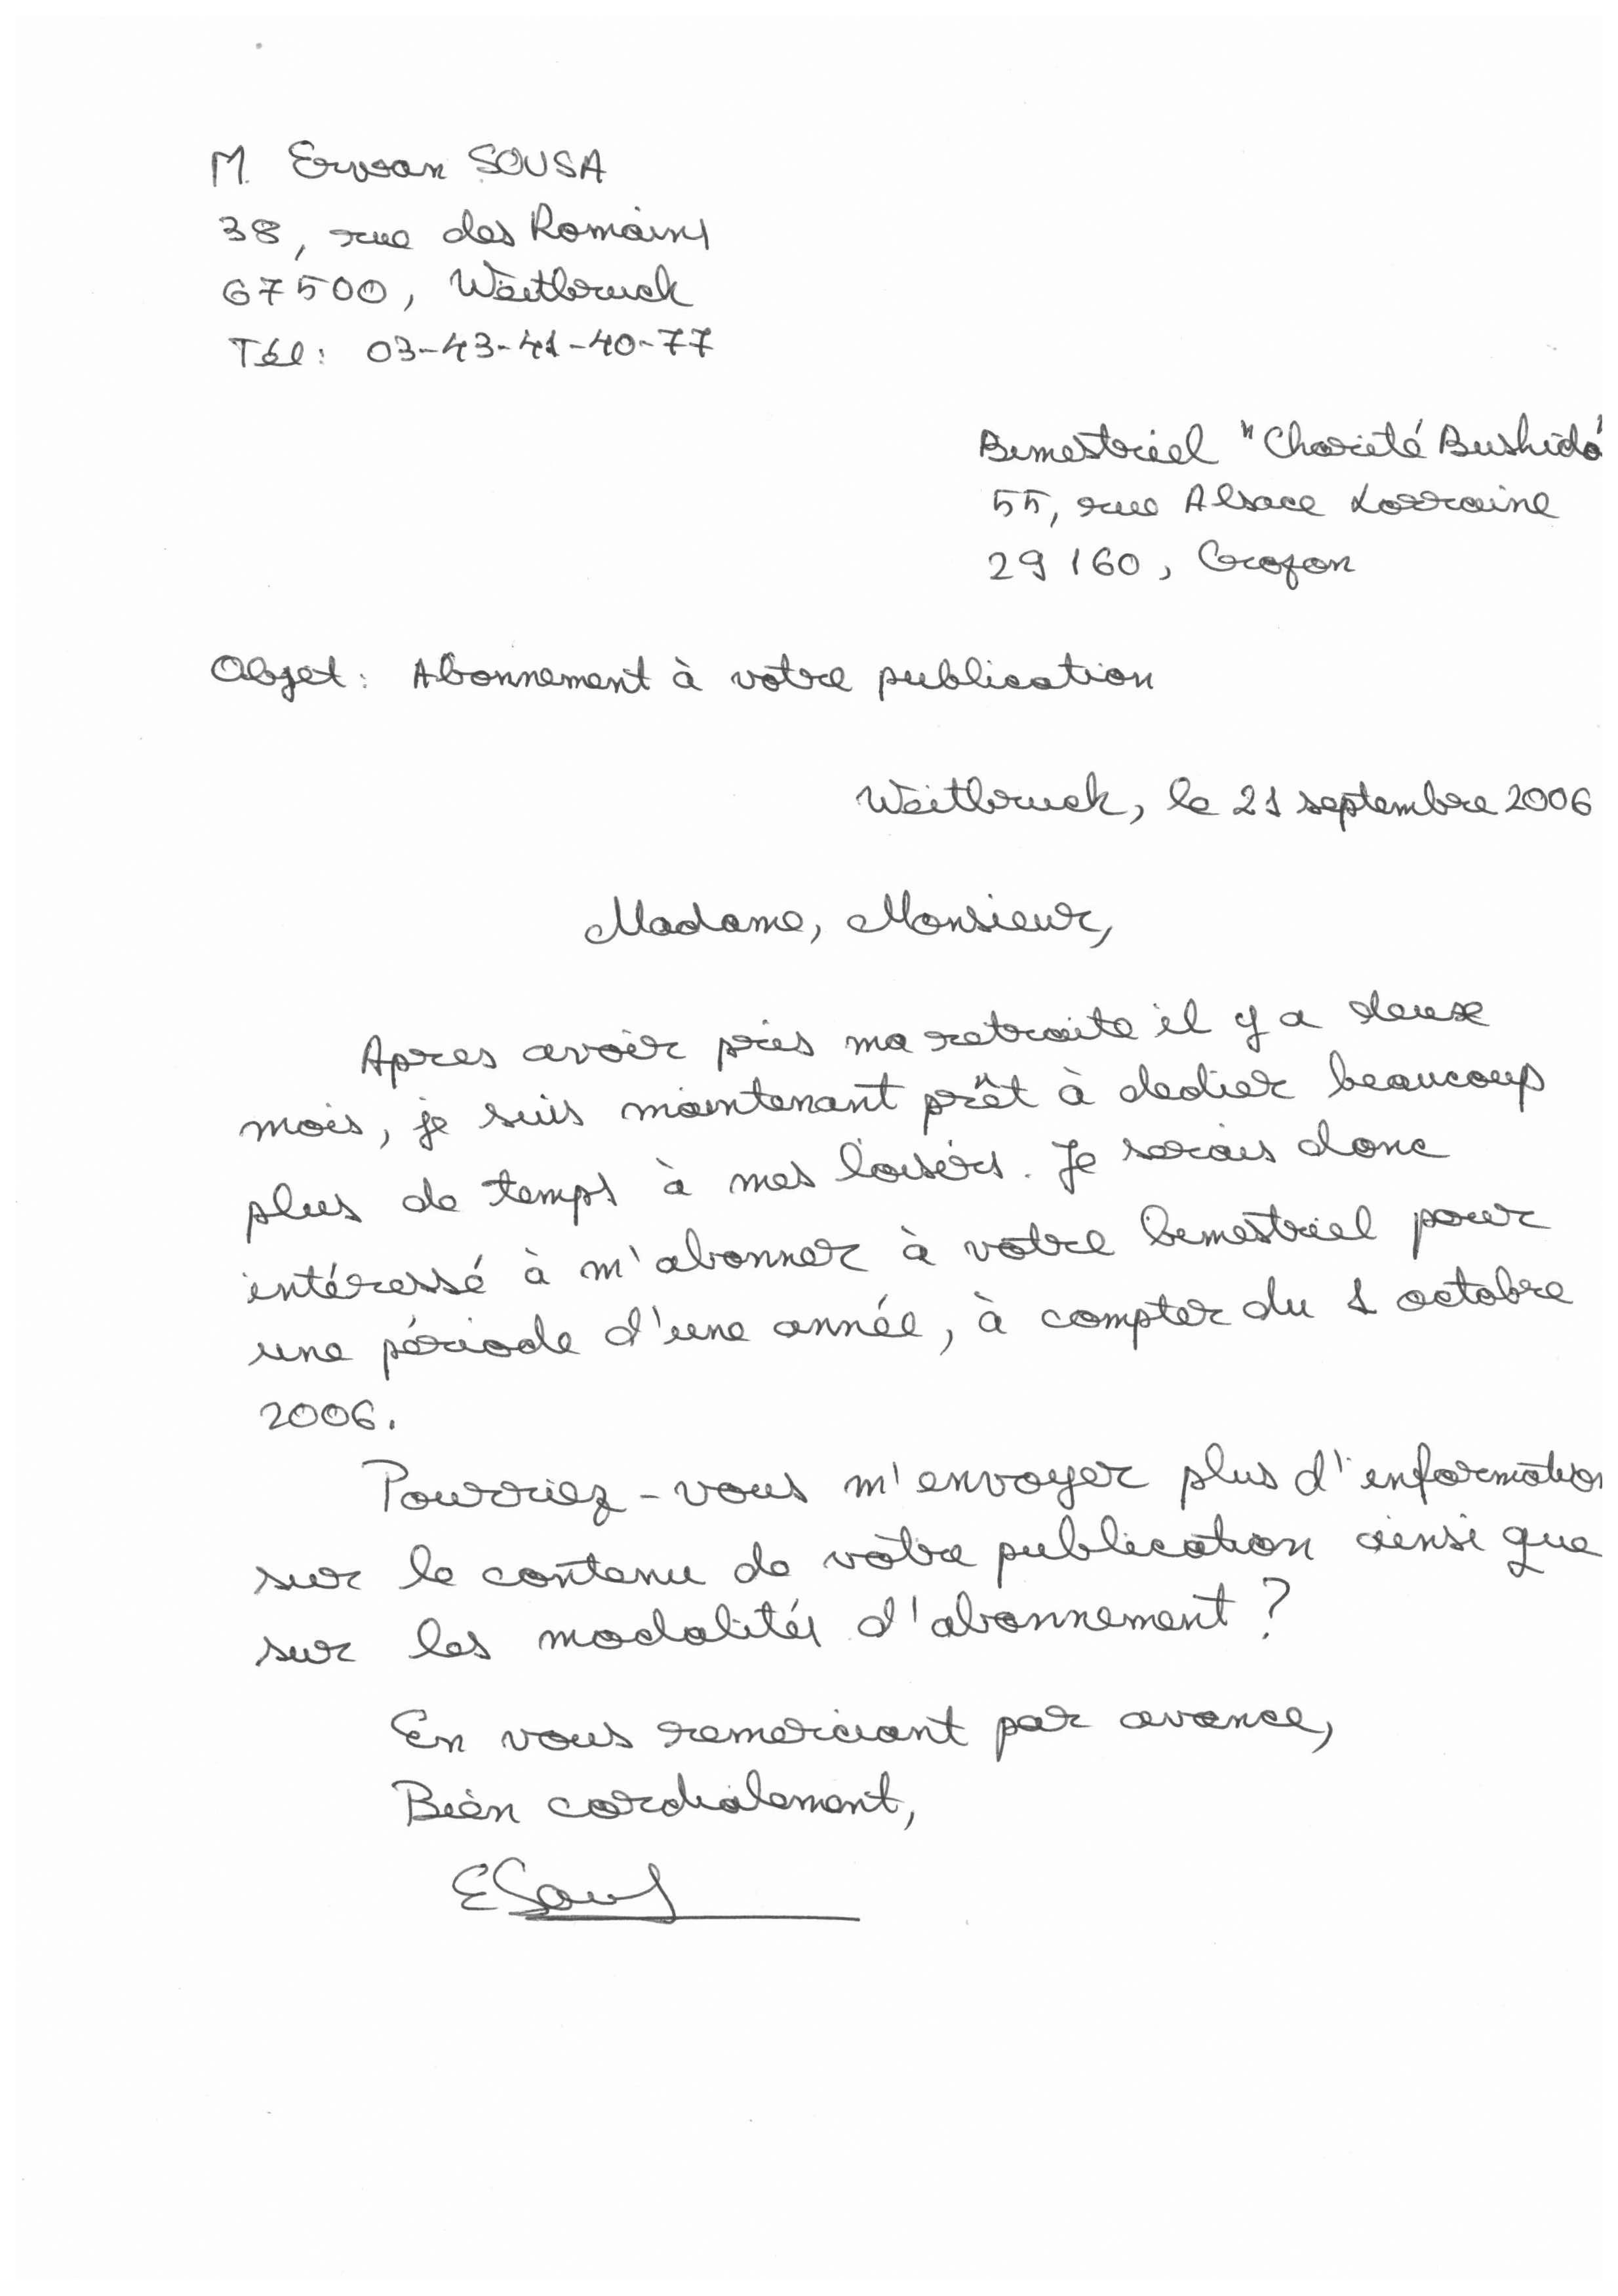 M. Erwan SOUSA
38, rue des Romains
67500, Weitbruch
Tél: 03-43-41-40-77
Bimestriel "Charité Bushido"
55, rue Alsace Lorraine
29160, Crozon
Objet: Abonnement à votre publication
Weitbruch, le 21 septembre 2006
Madame, Monsieur,
Apres avoir pris ma retraite il y a deux
mois, je suis maintenant prêt à dedier beaucoup
plus de temps à mes loisirs. Je serais donc
intéressé à m'abonner à votre bimestriel pour
une période d'une année, à compter du 1 octobre
2006.
Pourriez-vous m'envoyer plus d'information
sur le contenu de votre publication ainsi que
sur les modalités d'abonnement ?
En vous remerciant par avance,
Bien cordialement,